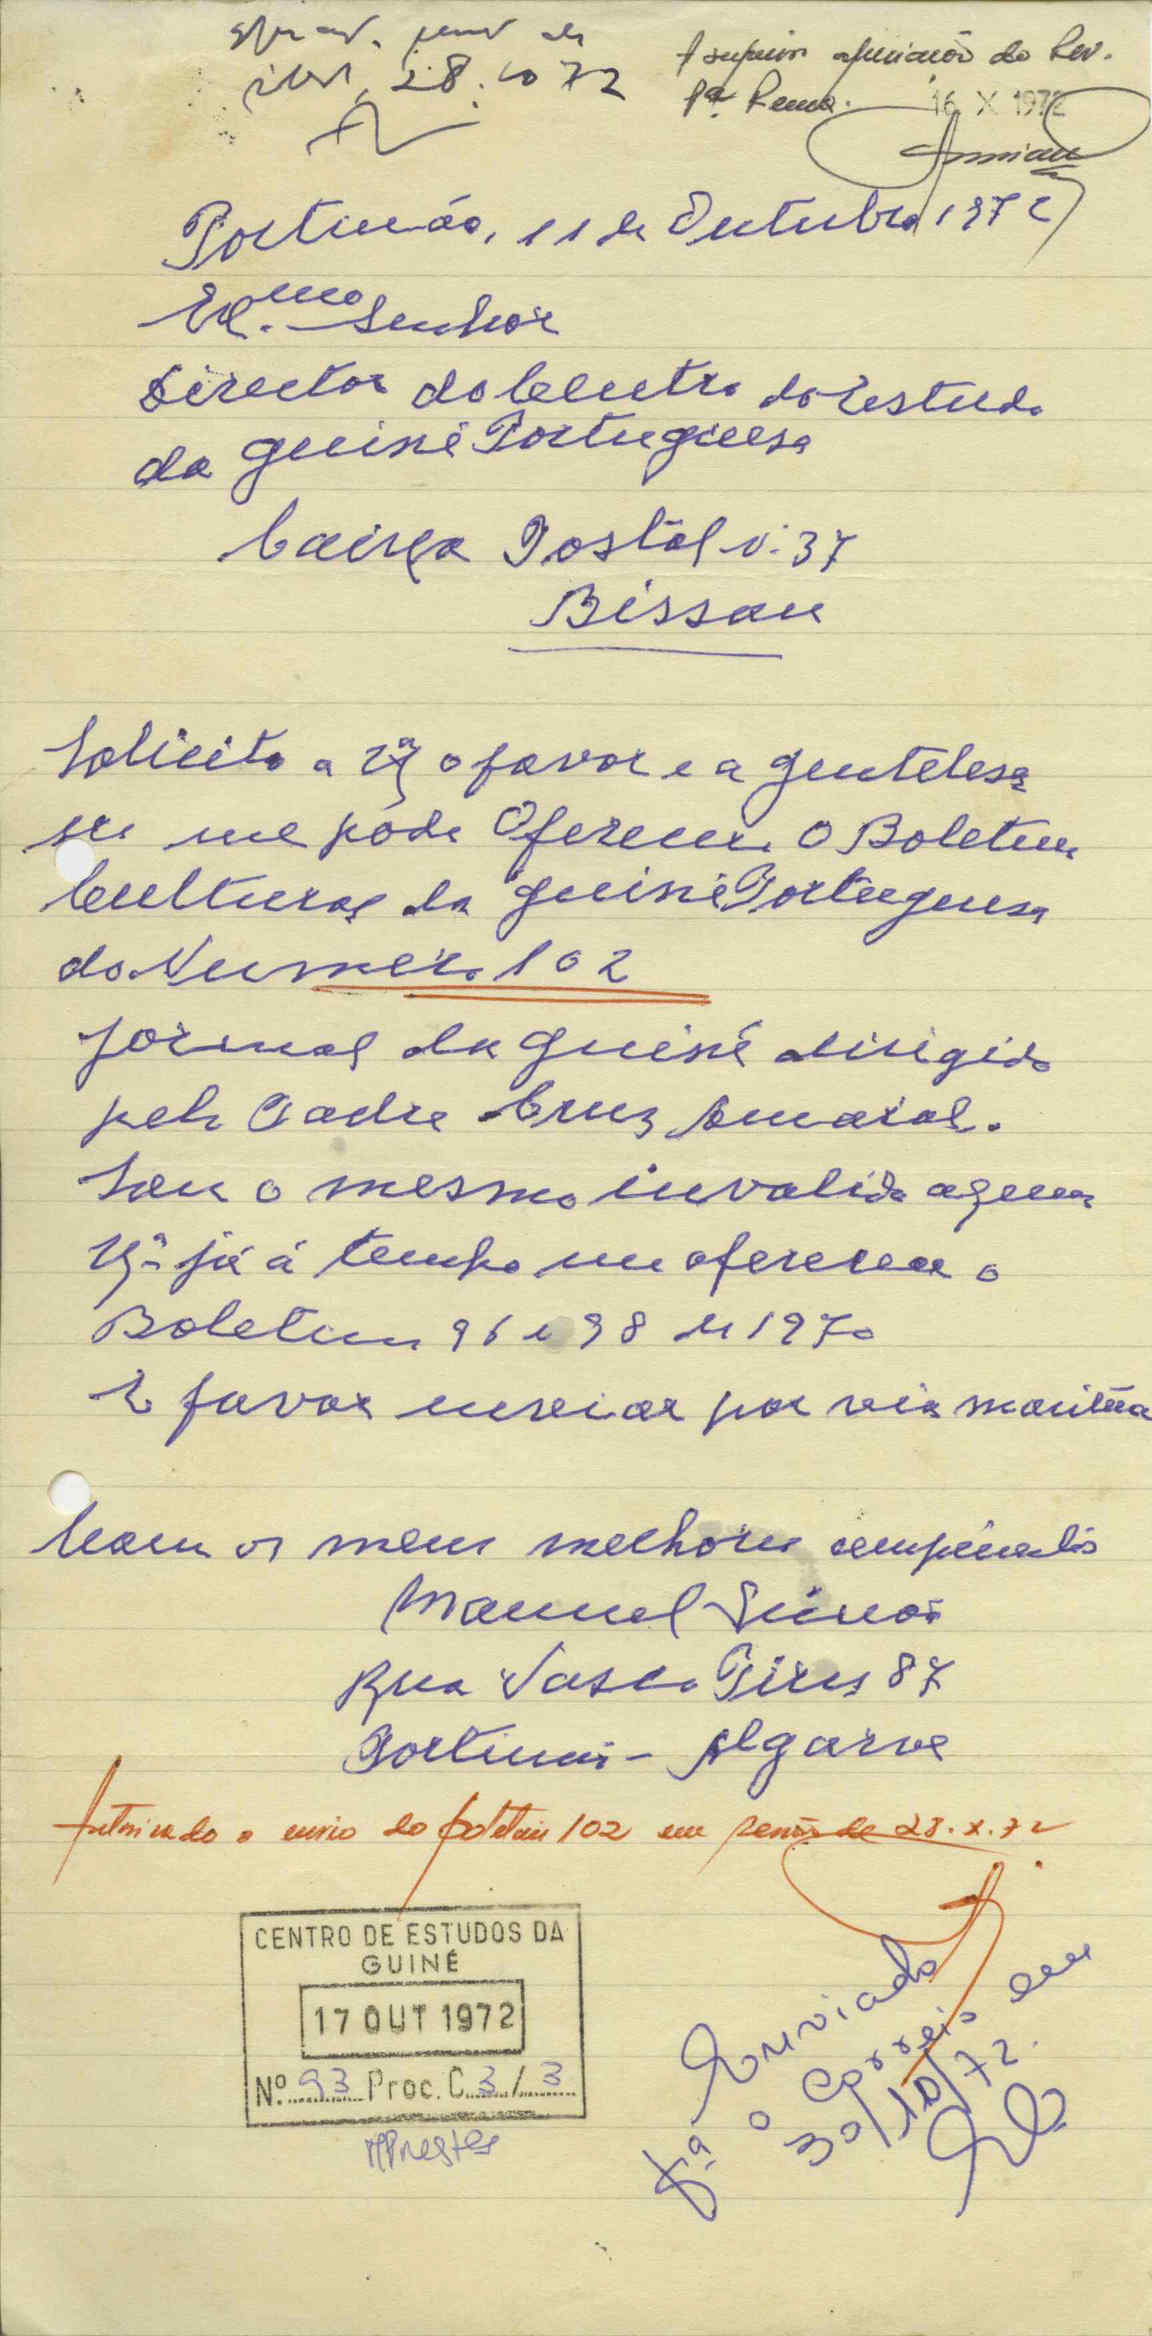 28.10.72
À superior apreciação do Rev.
Pe. Rema. 16 X 1972
Portimão, 11 de Outubro 1972
Exmo. Senhor
Director do Centro do Estudo
da Guiné Portuguesa
Caixa Postal n. 37
Bissau
Solicito a Vª o favor e a gentelesa
se me póde Oferecer O Boletim
Cultural da Guiné Portuguesa
do Numero 102
Jornal da Guiné dirigido
pelo Padre Cruz Amaral.
Sou o mesmo invalido a quem
Vª já á tempo me oferecea o
Boletim 96 e 98 de 1970
É favor enveiar por via marítima
Com os meus melhores cumprimentos
Manuel
Rua Vasco Pires 87
Portimão - Algarve
Autorizado o envio do boletim 102 em de 28.X.72
CENTRO DE ESTUDOS DA
GUINÉ
17 OUT 1972
Nº 93 Proc. C 3 / 3
Enviado
pª o Correio em
30/10/72.